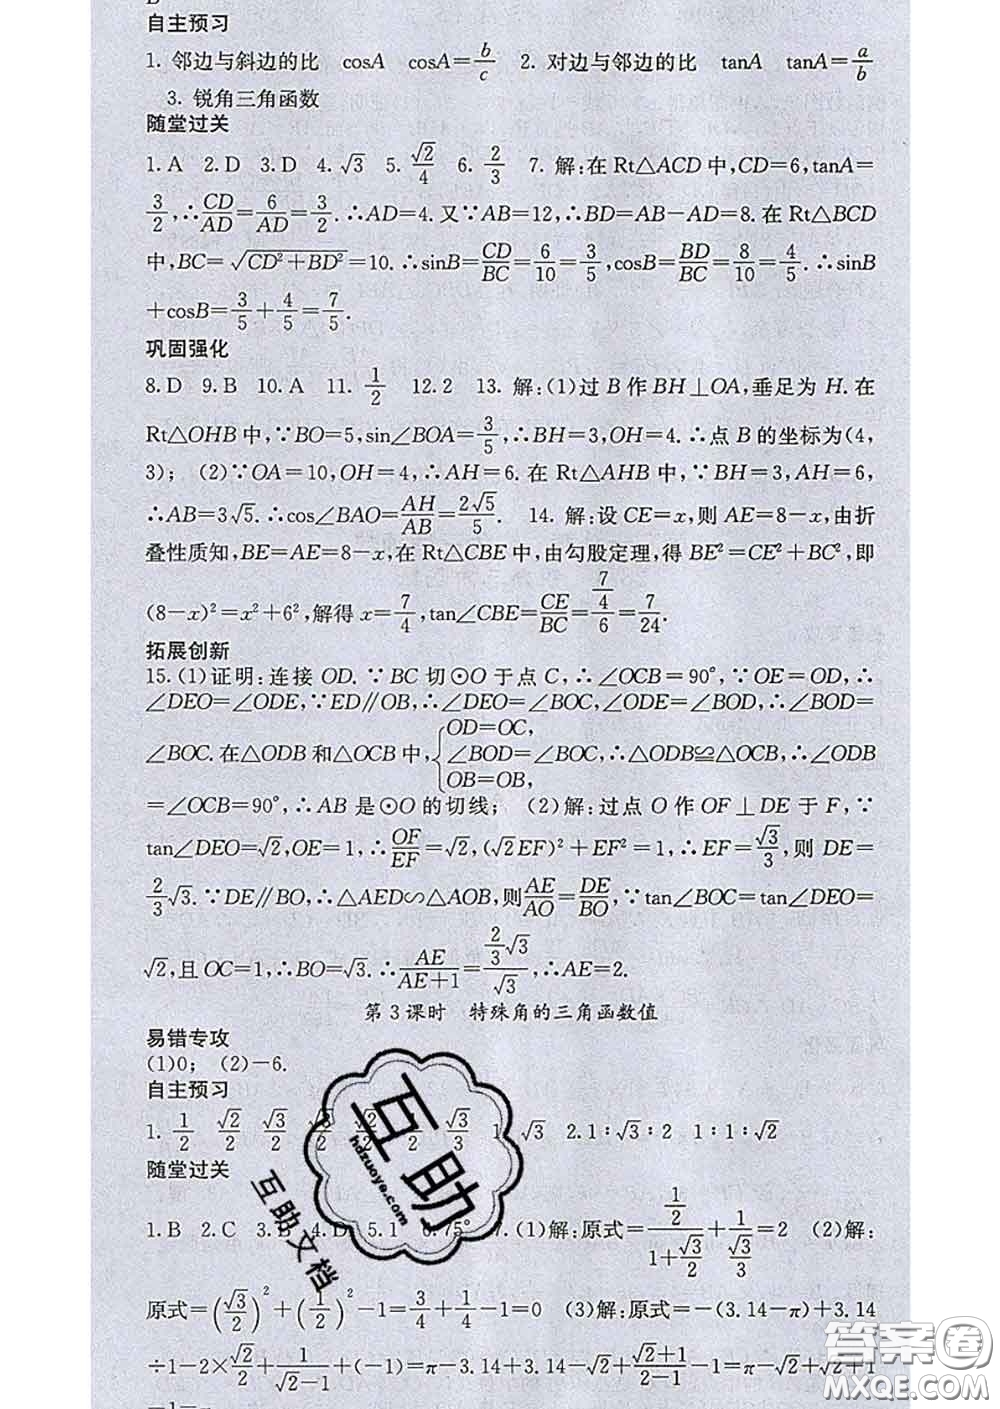 自主预习
1. 邻边与斜边的比 cosA cosA=b/c 2. 对边与邻边的比 tanA tanA=a/b
3. 锐角三角函数
随堂过关
1. A 2. D 3. D 4. √3 5. √2/4 6. 2/3 7. 解:在 Rt△ACD 中,CD=6,tanA=
3/2,∴CD/AD=6/AD=3/2.∴AD=4.又∵AB=12,∴BD=AB-AD=8.在 Rt△BCD
中,BC=√(CD²+BD²)=10.∴sinB=CD/BC=6/10=3/5,cosB=BD/BC=8/10=4/5.∴sinB
+cosB=3/5+4/5=7/5.
巩固强化
8. D 9. B 10. A 11. 1/2 12. 2 13. 解:(1)过 B 作 BH⊥OA,垂足为 H.在
Rt△OHB 中,∵BO=5,sin∠BOA=3/5,∴BH=3,OH=4.∴点 B 的坐标为(4,
3); (2)∵OA=10,OH=4,∴AH=6.在 Rt△AHB 中,∵BH=3,AH=6,
∴AB=3√5.∴cos∠BAO=AH/AB=2√5/5. 14. 解:设 CE=x,则 AE=8-x,由折
叠性质知,BE=AE=8-x,在 Rt△CBE 中,由勾股定理,得 BE²=CE²+BC²,即
(8-x)²=x²+6²,解得 x=7/4,tan∠CBE=CE/BC=(7/4)/6=7/24.
拓展创新
15. (1)证明:连接 OD.∵BC 切⊙O 于点 C,∴∠OCB=90°,∵OE=OD,∴
∠DEO=∠ODE,∵ED∥OB,∴∠DEO=∠BOC,∠ODE=∠BOD,∴∠BOD=
∠BOC.在△ODB 和△OCB 中,{OD=OC, ∠BOD=∠BOC, OB=OB, ∴△ODB≌△OCB,∴∠ODB
=∠OCB=90°,∴AB 是⊙O 的切线; (2)解:过点 O 作 OF⊥DE 于 F,∵
tan∠DEO=√2,OE=1,∴OF/EF=√2,(√2EF)²+EF²=1,∴EF=√3/3,则 DE=
2/3√3.∵DE∥BO,∴△AED∽△AOB,则AE/AO=DE/BO,∵tan∠BOC=tan∠DEO=
√2,且 OC=1,∴BO=√3.∴AE/(AE+1)=(2/3√3)/√3,∴AE=2.
第 3 课时 特殊角的三角函数值
易错专攻
(1)0; (2)-6.
自主预习
1. 1/2 √2/2 √3/2 √3/2 √2/2 √3/3 1 √3 2. 1∶√3∶2 1∶1∶√2
随堂过关
1. B 2. C 3. B 4. D 5. 1 6. 75° 7. (1)解:原式=(1/2)/(1+√3/2)+1/(√3/3)=2 (2)解:
原式=(√3/2)²+(1/2)²-1=3/4+1/4-1=0 (3)解:原式=-(3.14-π)+3.14
÷1-2×√2/2+1/(√2-1)+(-1)=π-3.14+3.14-√2+(√2+1)/(2-1)-1=π-√2+√2+1
互助
hdzuoye.com
互助文档
答案圈
MXQE.COM